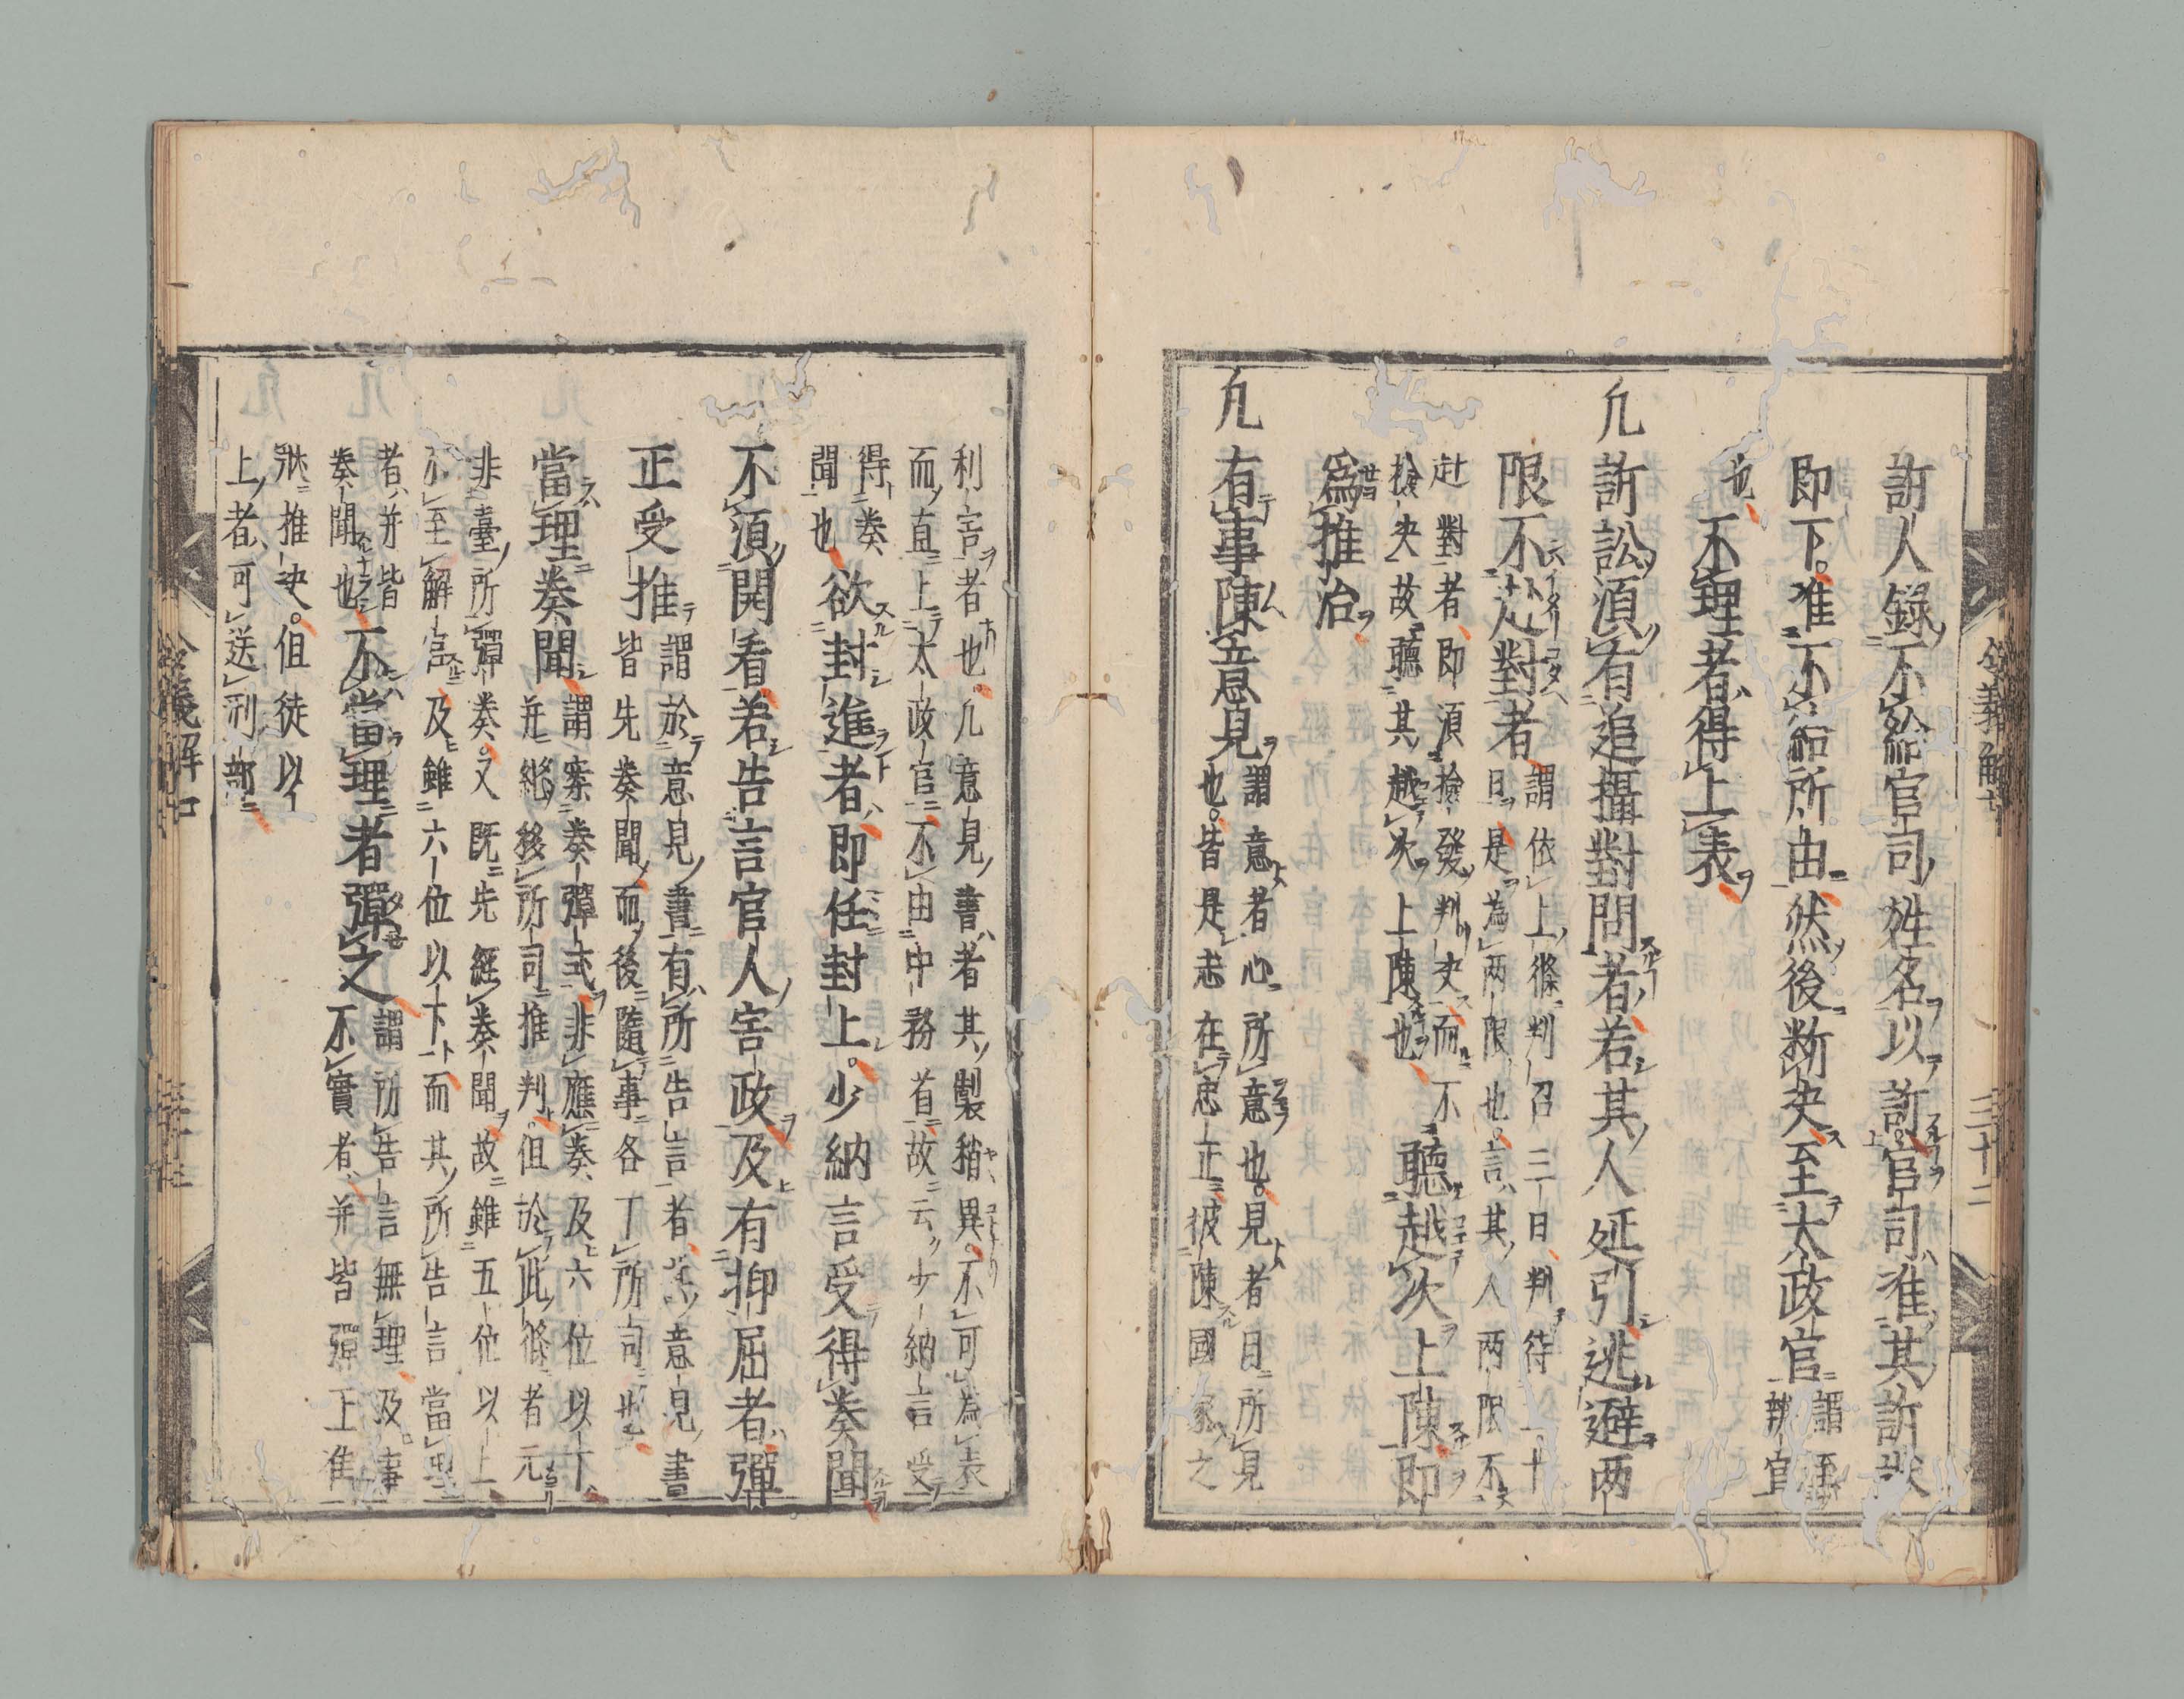 訴人錄。不給官司姓名以訴。官司准其訴狀
即下。准不給所由。然後断决至太政官
謂至
辨官
也
不理者得上表
凡訴訟須有追攝對問者若其人延引逃避两
限不赴對者
謂依上條判召三日判待二十
日是為两限也言其人两限不
赴對者即須撿發判决而不
撿决故聽其越次上陳也
聽越次上陳即
為推治
凡有事陳意見
謂意者心所意也見者目所見
也皆是志在忠正披陳國家之
利害者也凡意見書者其製稍異不可為表
而直上太政官不由中務省故云少納言受
得奏
聞也
欲封進者即任封上。少納言受得奏聞
不須開看若告言官人害政及有抑屈者彈
正受推
謂於意見書有所告言者意見書
皆先奏聞而後隨事各下所司也
當理奏聞
謂案奏彈式非應奏及六位以下
并糺移所司推判。但於此條者元
非臺所彈奏。又既先經奏聞故雖五位以上
不至解官及雖六位以下而其所告言當理
者并皆
奏聞也
不當理者彈之
謂所告言無理及事
不實者并皆彈正准
狀推决。但徒以
上者可送刑部
令義解七
三十二